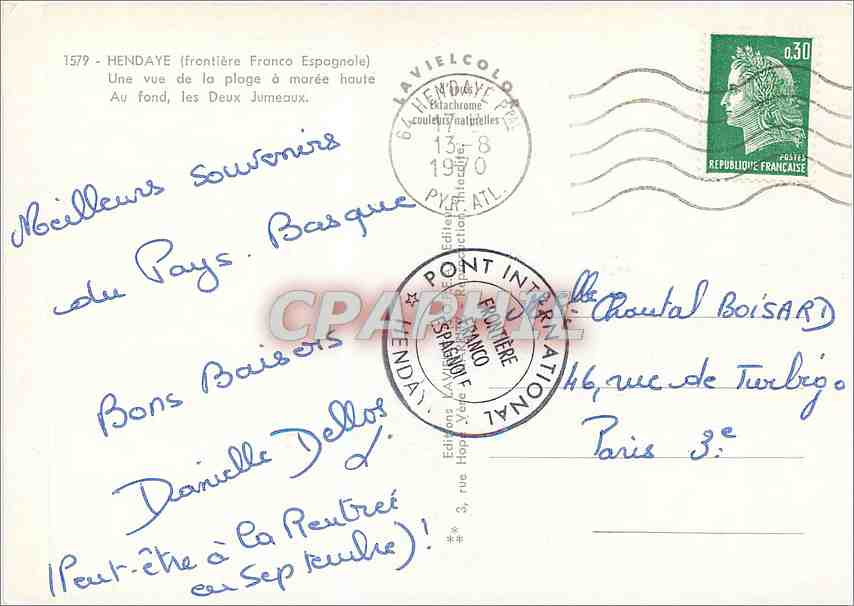 1579 - HENDAYE (frontière Franco Espagnole)
Une vue de la plage à marée haute
Au fond, les Deux Jumeaux.
LAVIELCOLOR
d'après
Ektachrome
couleurs naturelles
64 HENDAYE Pal
17
13-8
1970
PYR. ATL.
0,30
POSTES
REPUBLIQUE FRANÇAISE
Meilleurs Souvenirs
du Pays. Basque
Bons Baisers
Danielle Dellos
(Peut-être à la Rentrée
en Septembre)!
PONT INTERNATIONAL
☆ HENDAYE
FRONTIÈRE
FRANCO
ESPAGNOLE
CPARHIL
Editions
Editeur
** 3, rue
Reproduction interdite.
Mlle Chantal BOISARD
46, rue de Turbigo
Paris 3.e